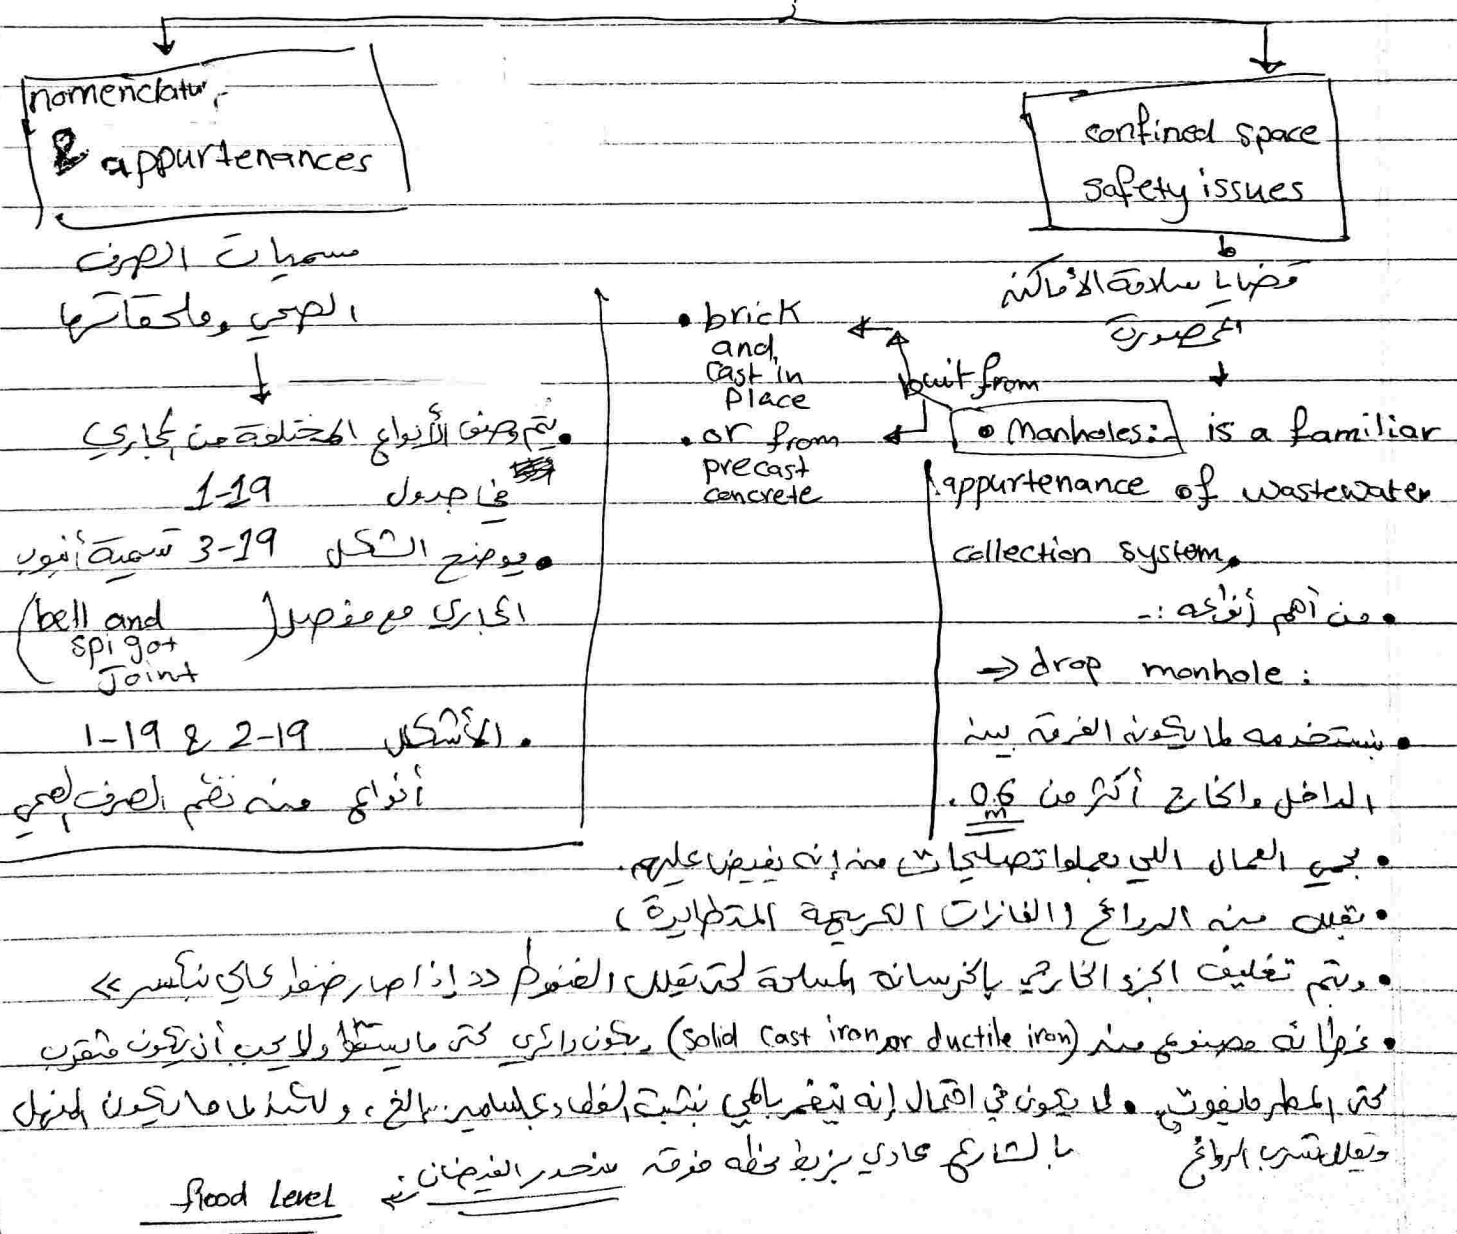 nomenclatur
& appurtenances
مسميات الصرف
الصحي وملحقاتها
• يتم وصف الأنواع المختلفة من المجاري
في جدول 19-1
• يوضح الشكل 19-3 تسمية أنبوب
المجاري مع مفصل (bell and
spigot
Joint)
• الأشكال 19-2 & 19-1
أنواع من نظم الصرف الصحي
confined space
safety issues
قضايا سلامة الأماكن
المحصورة
• brick
and
cast in
place
• or from
precast
concrete
buit from
• Manholes: is a familiar
appurtenance of wastewater
collection system.
• من أهم أنواعه :-
→ drop monhole :
• بنستخدمه لما يكون الفرق بين
الداخل والخارج أكثر من 0.6 m.
• بحمي العمال اللي بعملوا تصليحات من إنه يفيض عليهم.
• بقلل من الروائح (الغازات الكريهة المتطايرة)
• ويتم تغليف الجزء الخارجي بالخرسانه المسلحة لحتى يقلل الضغوط دد إذا صار ضغط عالي بنكسر »
• غطائه مصنوع من (solid cast iron or ductile iron) وبكون دائري حتى ما يسقط ولا يجب أن يكون مثقوب
حتى المطر ما يفوت • لما يكون في احتمال إنه يتغمر بالمي بنثبت الغطاء بمسامير بالغ، ولكن لما ما بكون المنهل
ويقلل تسرب الروائح
بالشارع عادي بزبط نحطه فوق منحدر الفيضان
flood Level